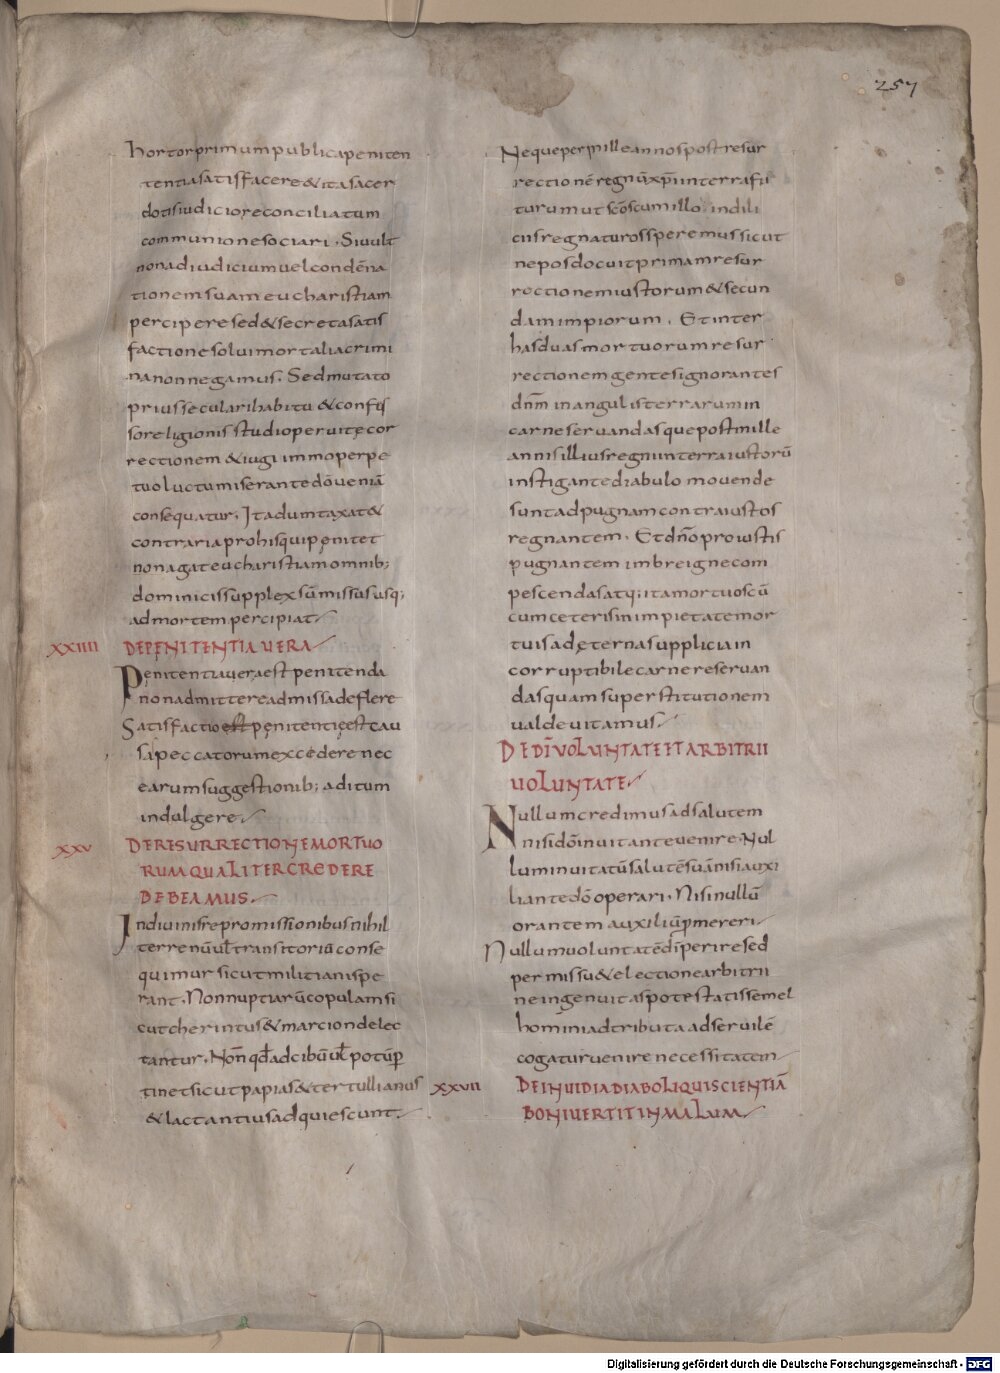 257
hortor prim um publica peniten
tentia satisfacere & ita sacer
dotis iudicio reconciliatum
communione sociari . Si uult
non ad iudicium uel condēna
tionem suam eucharistiam
percipere sed & secreta satis
factione solui mortalia crimi
na non negamus . Sed mutato
prius seculari habitu & confes
so religionis studio per uitę cor
rectionem & iugi immo perpe
tuo luctu miserante dō ueniā
consequatur . Ita dum taxat &
contraria pro his qui penitet
non agat eucharistiam omnib;
dominicis supplex sūmissus usq;
ad mortem percipiat
XXIIII DE PENITENTIA UERA
Penitentia uera est penitenda
non admittere admissa deflere
Satisfactio est penitentię est cau
sa peccatorum excedere nec
earum suggestionib; aditum
indulgere
XXV DE RESURRECTIONE MORTUO
RUM QUALITER CREDERE
DEBEAMUS .
In diuinis repromissionibus nihil
terrenū uł transitoriū conse
quimur sicut militiani spe
rant . Non nuptiarū copulam si
cut cherintus & marcion delec
tantur . Non qđ ad cibū uł potū ꝑ
tinet sicut papias & tertullianus
& lactantius adquiescunt
Neque per mille annos post resur
rectionē regnū xp̄i in terra fu
turum ut scōs cum illo in dili
ciis regnaturos speremus sicut
nepos docuit primam resur
rectionem iustorum & secun
dam impiorum . Et inter
has duas mortuorum resur
rectionem gentes ignorantes
dnm̄ in angulis terrarum in
carne seruandas que post mille
annis illius regni in terra iustorū
instigante diabulo mouende
sunt ad pugnam contra iustos
regnantem . Et dn̄o pro iustis
pugnantem imbre igne com
pescendas atq; ita mortuos cū
cum ceteris in impietate mor
tuis ad ęterna supplicia in
corruptibile carne reseruan
das quam superstitutionem
ualde uitamus
DE DĪ UOLUNTATE ET ARBITRII
UOLUNTATE
Nullum credimus ad salutem
nisi dō inuitante uenire . Nul
lum inuitatū salutē suā nisi auxi
liante dō operari . Nisi nullū
orantem auxiliū ꝓmereri
Nullum uoluntatē dī perire sed
permissu & electione arbitrii
ne ingenuitas potestatis semel
homini adtributa ad seruilē
cogatur uenire necessitatem
XXVII DE INUIDIA DIABOLI QUI SCIENTIĀ
BONI UERTIT IN MALUM
Digitalisierung gefördert durch die Deutsche Forschungsgemeinschaft - DFG